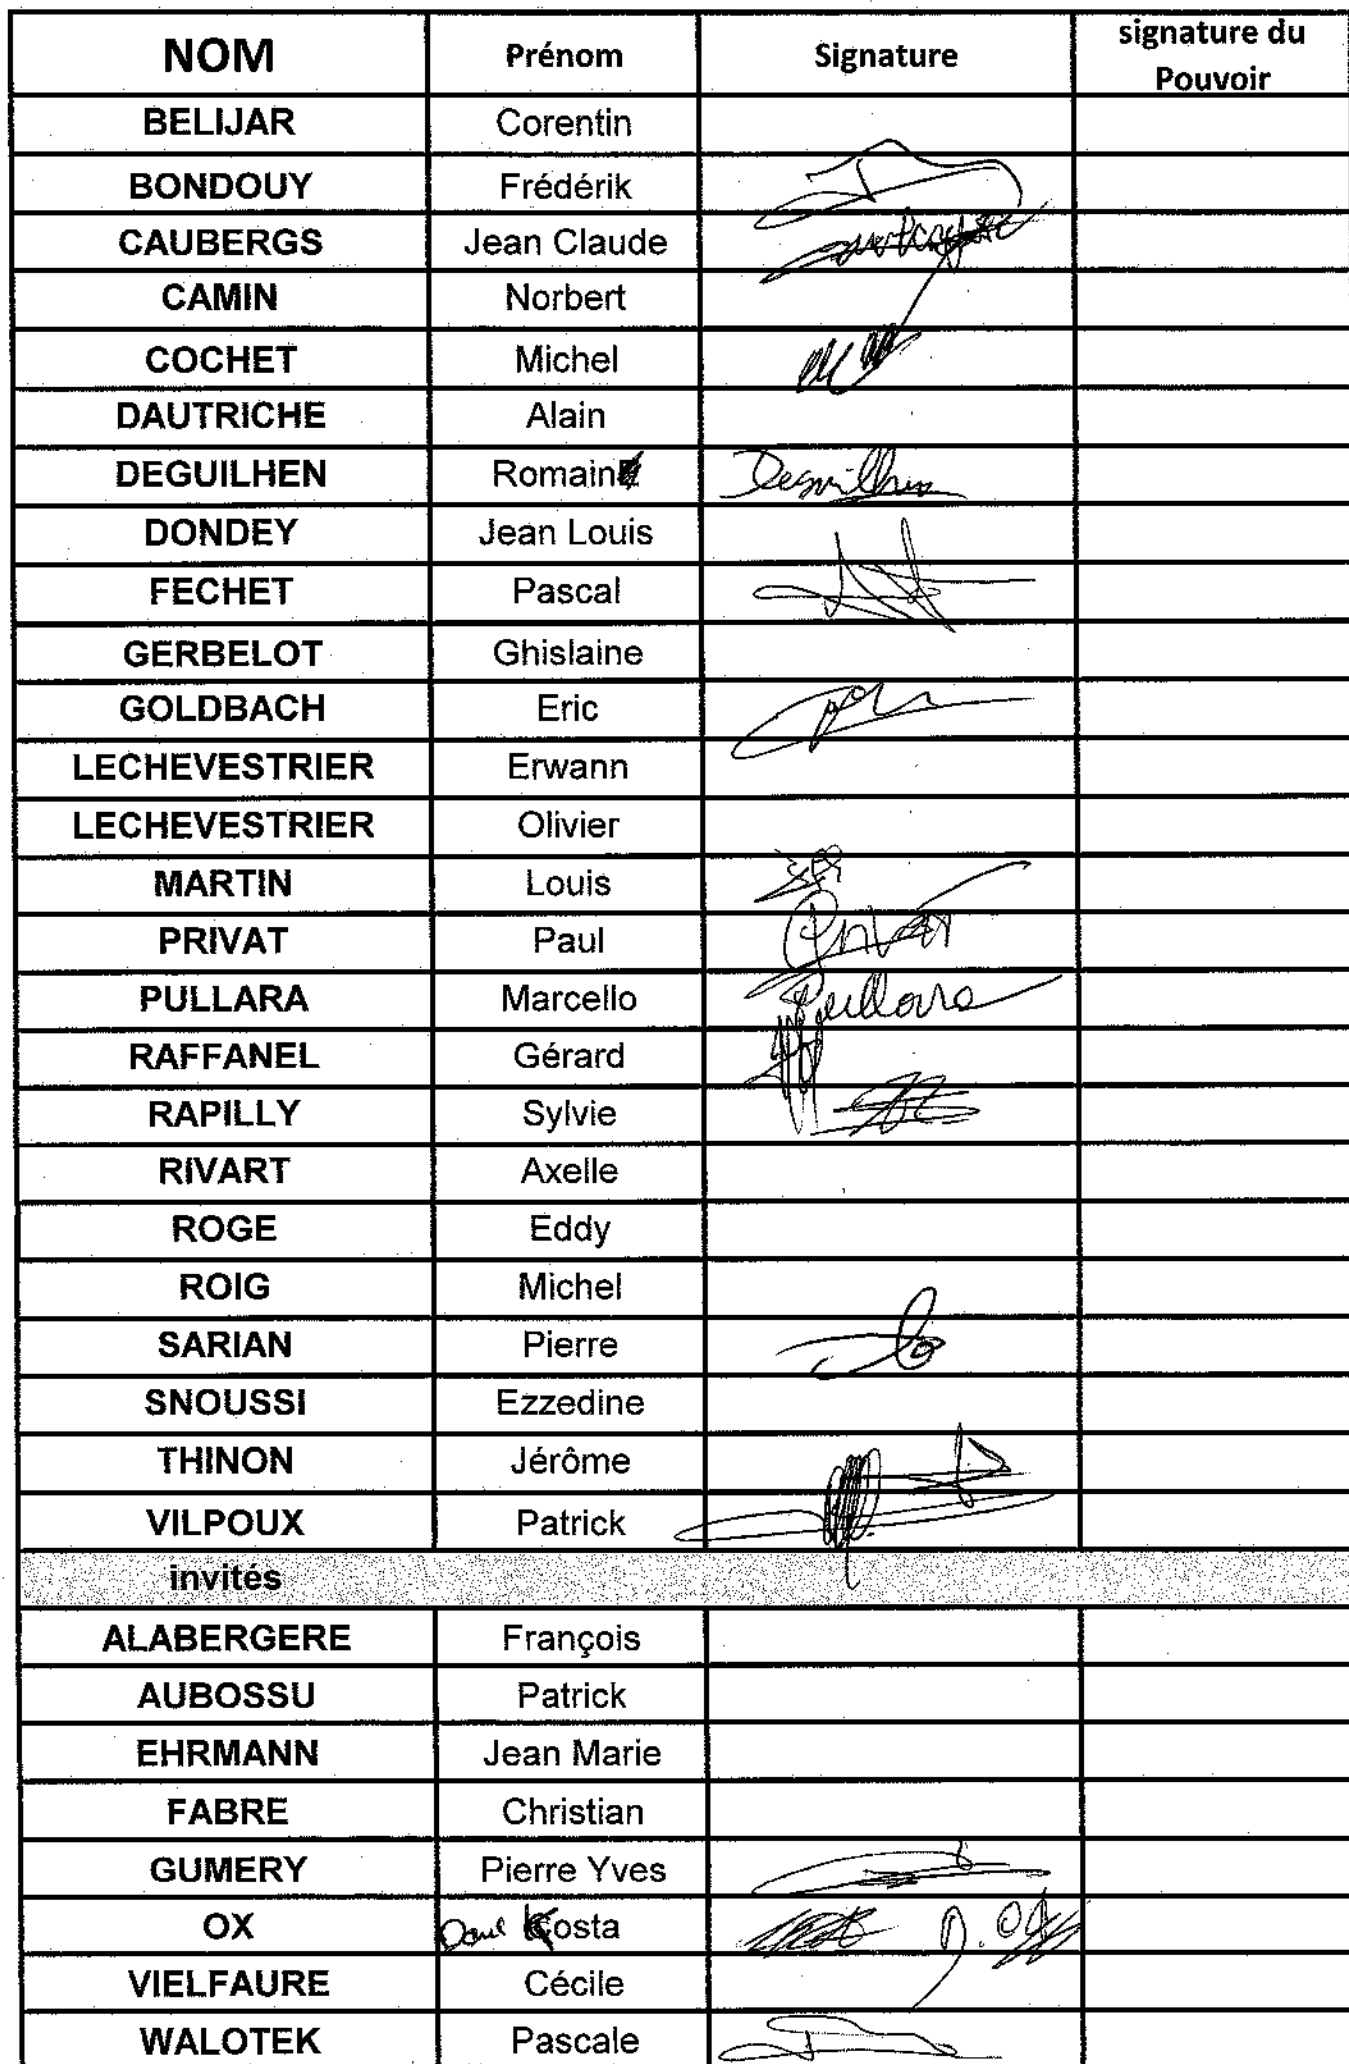 NOM Prénom Signature signature du Pouvoir
BELIJAR Corentin
BONDOUY Frédérik
CAUBERGS Jean Claude
CAMIN Norbert
COCHET Michel
DAUTRICHE Alain
DEGUILHEN Romain Deguilhen
DONDEY Jean Louis
FECHET Pascal
GERBELOT Ghislaine
GOLDBACH Eric
LECHEVESTRIER Erwann
LECHEVESTRIER Olivier
MARTIN Louis
PRIVAT Paul Privat
PULLARA Marcello Pullara
RAFFANEL Gérard
RAPILLY Sylvie
RIVART Axelle
ROGE Eddy
ROIG Michel
SARIAN Pierre
SNOUSSI Ezzedine
THINON Jérôme
VILPOUX Patrick
invités
ALABERGERE François
AUBOSSU Patrick
EHRMANN Jean Marie
FABRE Christian
GUMERY Pierre Yves
OX Costa
VIELFAURE Cécile
WALOTEK Pascale